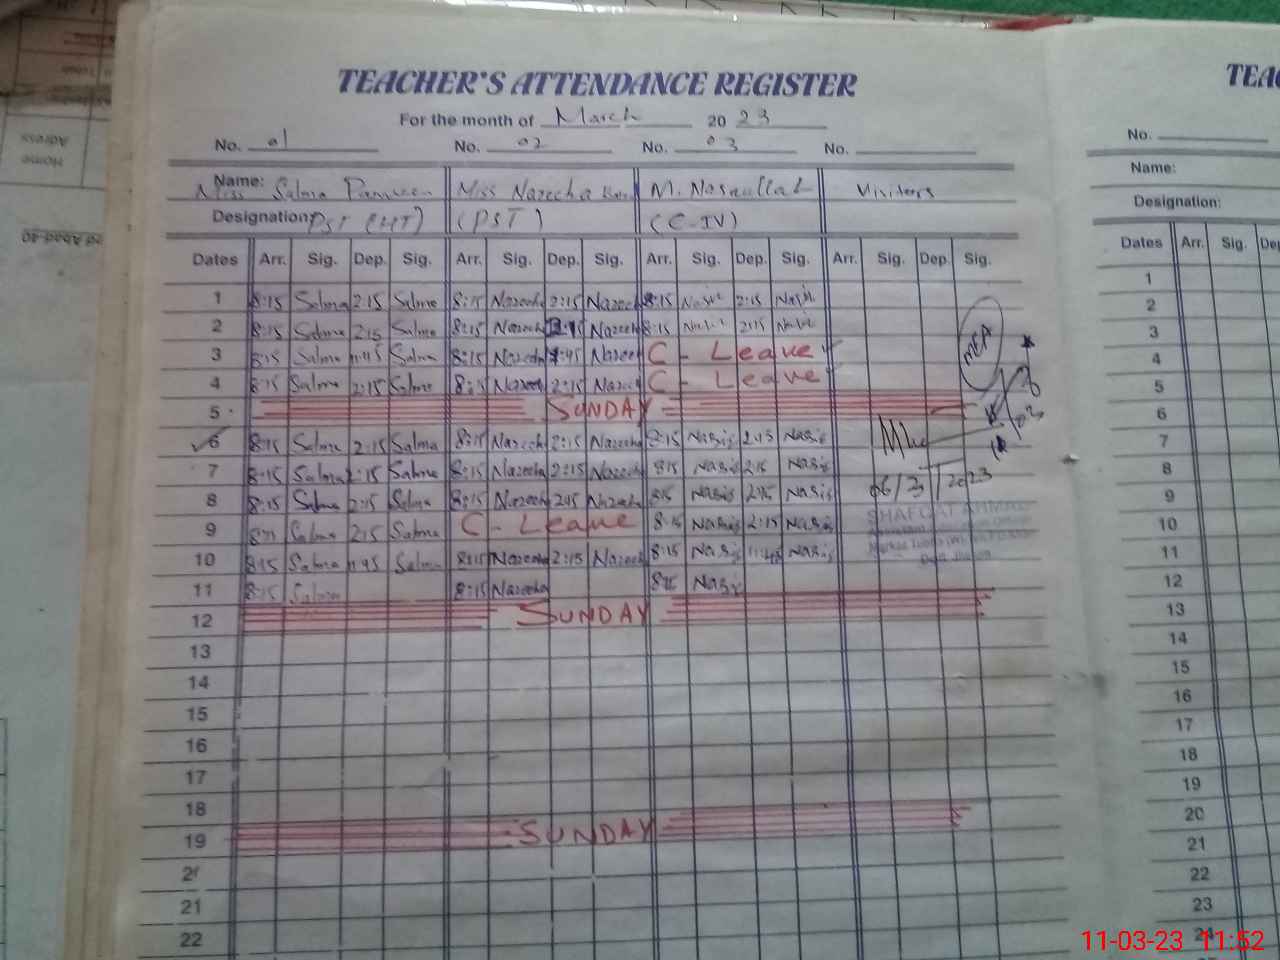 TEACHER'S ATTENDANCE REGISTER
For the month of March 20 23
No. 01 No. 02 No. 03 No.
Name: Miss Salma Miss Nazecha M. Nasrullah Visitors
Designation: PST (HT) (PST) (C-IV)
Dates Arr. Sig. Dep. Sig. Arr. Sig. Dep. Sig. Arr. Sig. Dep. Sig. Arr. Sig. Dep. Sig.
1 8:15 Salma 2:15 Salma 8:15 Nazecha 2:15 Nazech 8:15 2:15
2 8:15 Salma 2:15 Salma 8:15 Nazecha Nazech 8:15 2:15
3 8:15 Salma 11:45 Salma 8:15 Nazecha Nazech C - Leave
4 8:15 Salma 2:15 Salma 8:15 Nazech 2:15 Nazec C - Leave
5 SUNDAY
6 8:15 Salma 2:15 Salma 8:15 Nazech 2:15 Nazecha 8:15 Nasis 2:15 Nasis
7 8:15 Salma 2:15 Salma 8:15 Nazecha 2:15 Nazecha 8:15 Nasis 2:15 Nasis
8 8:15 Salma 2:15 Salma 8:15 Nazecha 2:15 Nazecha 8:15 Nasis 2:15 Nasis
06/3/2023
SHAFQAT AHMAD
9 8:15 Salma 2:15 Salma C - Leave 8:15 Nasis 2:15 Nasis
10 8:15 Salma 11:45 Salma 8:15 Nazecha 2:15 Nazech 8:15 Nasis 11:45 Nasis
11 8:15 Salma 8:15 Nazecha 8:15 Nasis
12 SUNDAY
13
14
15
16
17
18
19 SUNDAY
21
22
MEA
TEAC
No.
Name:
Designation:
Dates Arr. Sig. De
1
2
3
4
5
6
7
8
9
10
11
12
13
14
15
16
17
18
19
20
21
22
23
24
Home
Adress
11-03-23 11:52